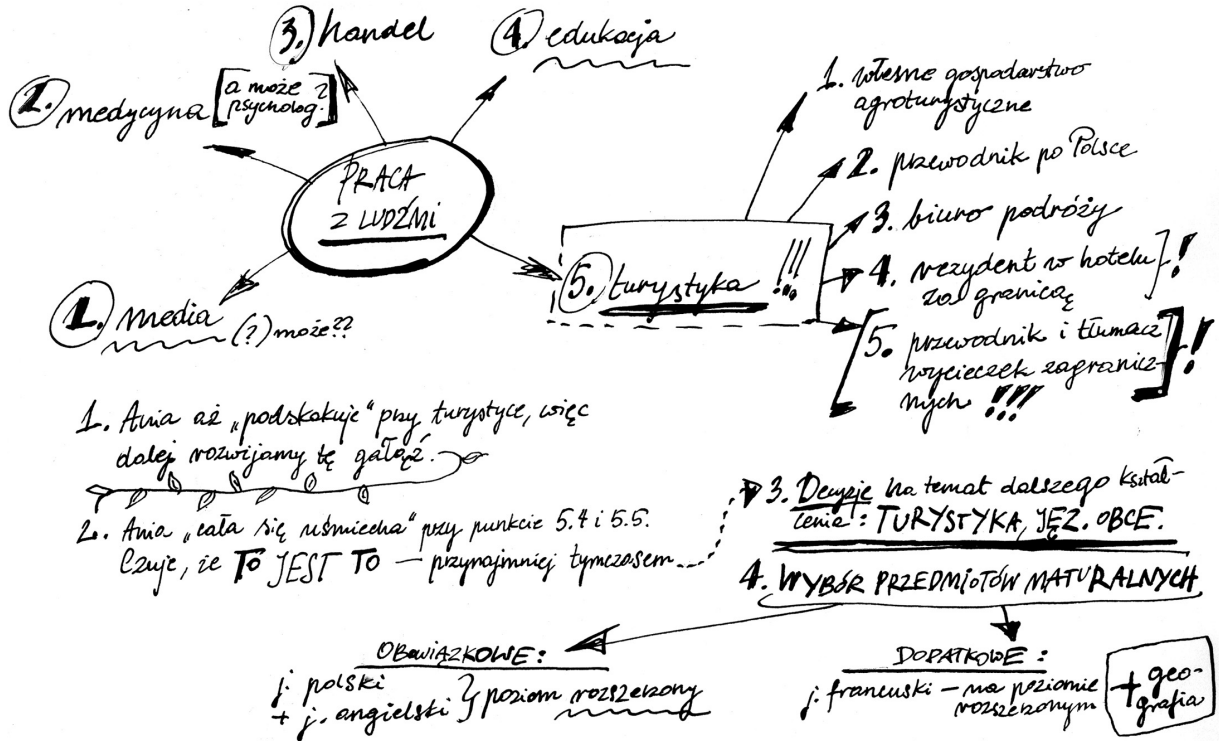 3. handel
4. edukacja
2. medycyna
[a może ?
psycholog.]
PRACA
Z LUDŹMI
1. media
(?) może??
5. turystyka !!!
1. własne gospodarstwo
agroturystyczne
2. przewodnik po Polsce
3. biuro podróży
4. rezydent w hotelu
za granicą ] !
[5. przewodnik i tłumacz
wycieczek zagranicz-
nych !!! ] !
1. Ania aż „podskakuje" przy turystyce, więc
dalej rozwijamy tę gałąź.
2. Ania „cała się uśmiecha" przy punkcie 5.4 i 5.5.
Czuje, że TO JEST TO — przynajmniej tymczasem...
3. Decyzje na temat dalszego kształ-
cenia: TURYSTYKA, JĘZ. OBCE.
4. WYBÓR PRZEDMIOTÓW MATURALNYCH
OBOWIĄZKOWE:
j. polski
+ j. angielski } poziom rozszerzony
DODATKOWE:
j. francuski – na poziomie
rozszerzonym
+ geo-
grafia